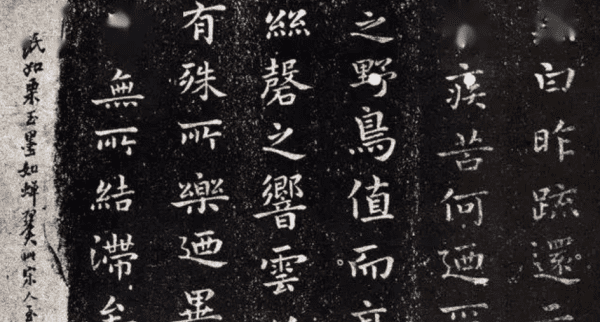 白昨疏還
疾苦何迺
之野鳥值而
絲磬之響雲
有殊所樂迺畢
無所結滯
紙如栗玉墨如蟬翼此宋人